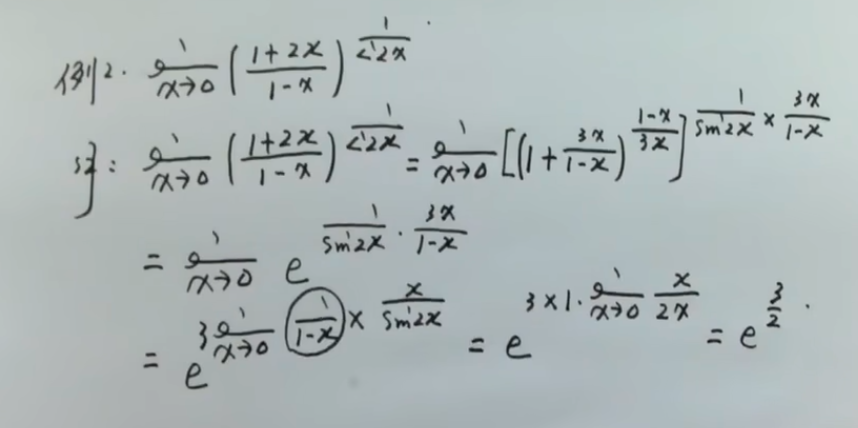 例2. lim_{x→0} ((1+2x)/(1-x))^{1/sin2x}.
解: lim_{x→0} ((1+2x)/(1-x))^{1/sin2x} = lim_{x→0} [(1+3x/(1-x))^{(1-x)/3x}]^{1/sin2x × 3x/(1-x)}
= lim_{x→0} e^{1/sin2x · 3x/(1-x)}
= e^{3 lim_{x→0} 1/(1-x) × x/sin2x} = e^{3×1· lim_{x→0} x/2x} = e^{3/2}.